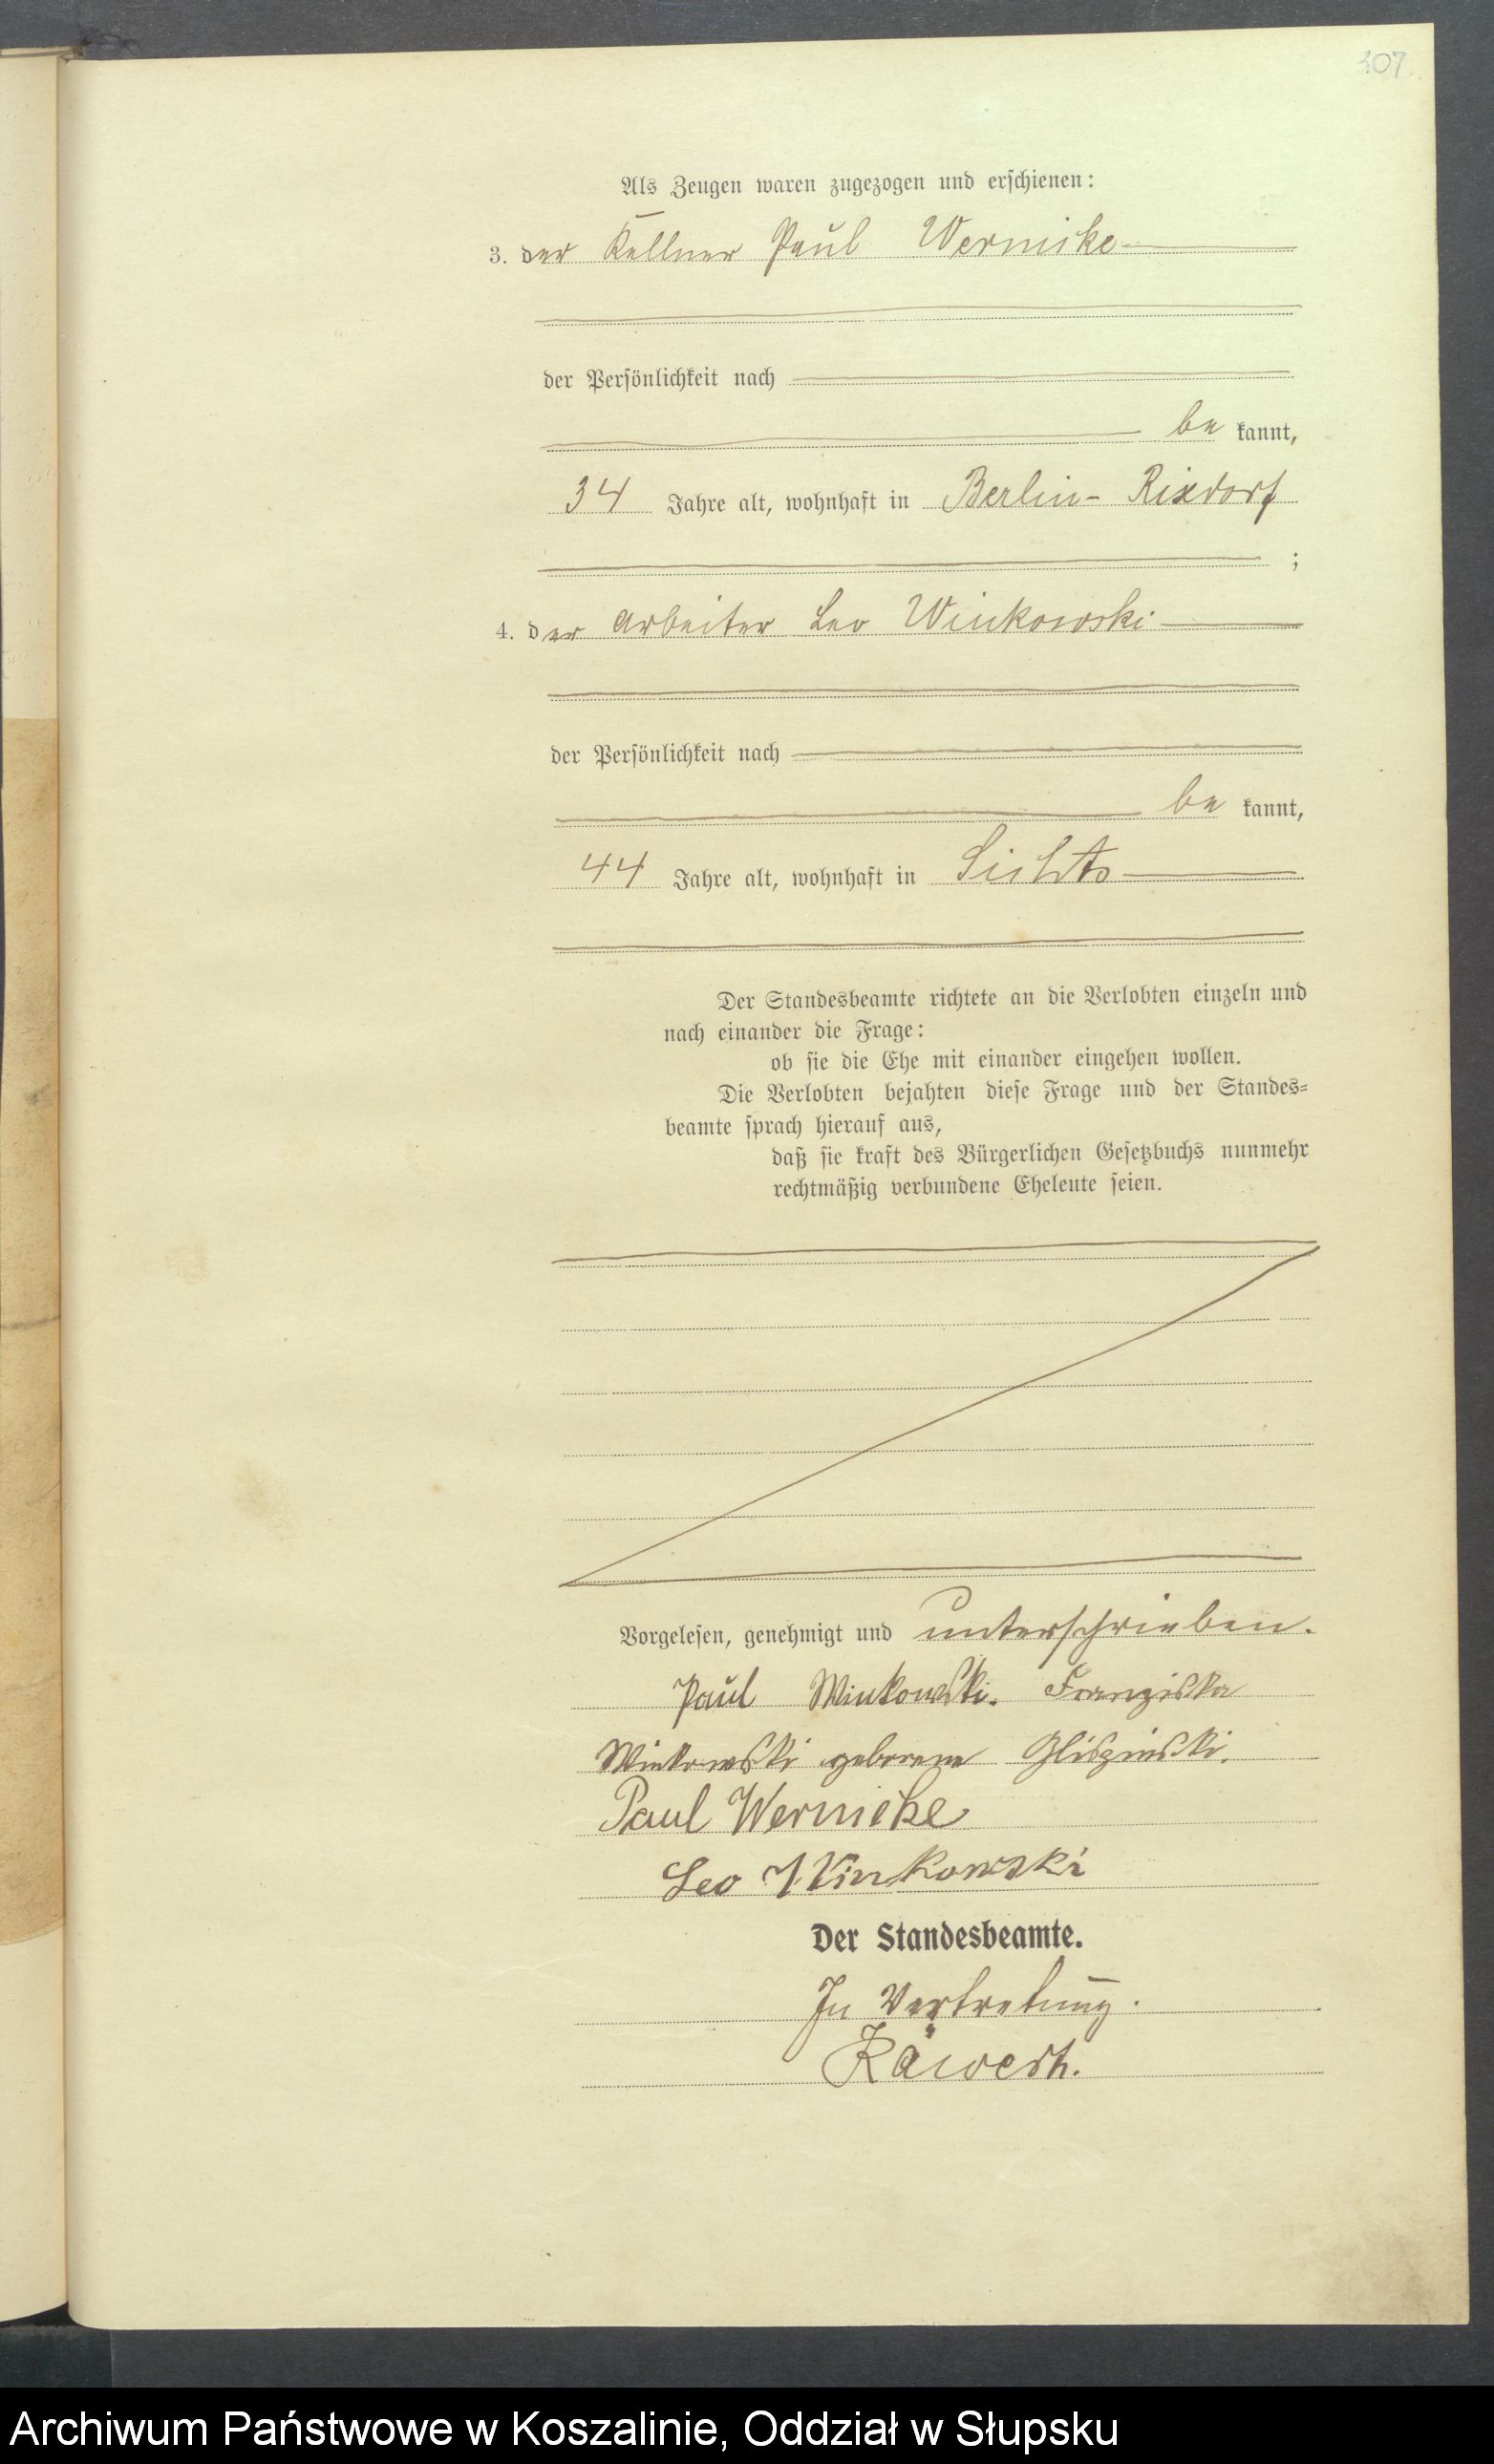 107
Als Zeugen waren zugezogen und erschienen:
3. der Kellner Paul Wernicke
der Persönlichkeit nach
be kannt,
34 Jahre alt, wohnhaft in Berlin- Rixdorf
;
4. der Arbeiter Leo Winkowski
der Persönlichkeit nach
be kannt,
44 Jahre alt, wohnhaft in
Der Standesbeamte richtete an die Verlobten einzeln und
nach einander die Frage:
ob sie die Ehe mit einander eingehen wollen.
Die Verlobten bejahten diese Frage und der Standes=
beamte sprach hierauf aus,
daß sie kraft des Bürgerlichen Gesetzbuchs nunmehr
rechtmäßig verbundene Eheleute seien.
Vorgelesen, genehmigt und unterschrieben.
Paul Winkowski. Franziska
Winkowski geborene Gliszinski.
Paul Wernicke
Leo Winkowski
Der Standesbeamte.
In Vertretung.
Archiwum Państwowe w Koszalinie, Oddział w Słupsku